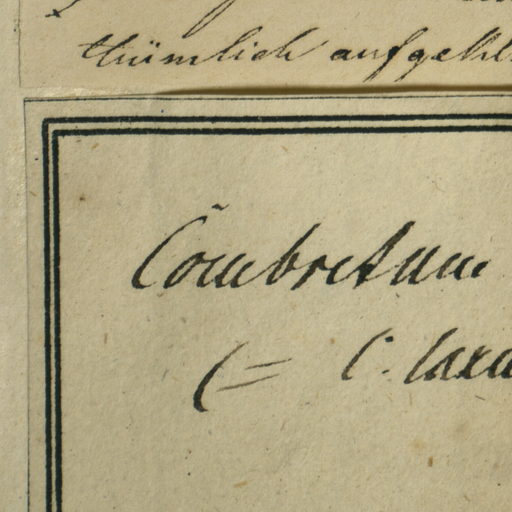 thümlich aufgekl
Combretum
(= C. laxu